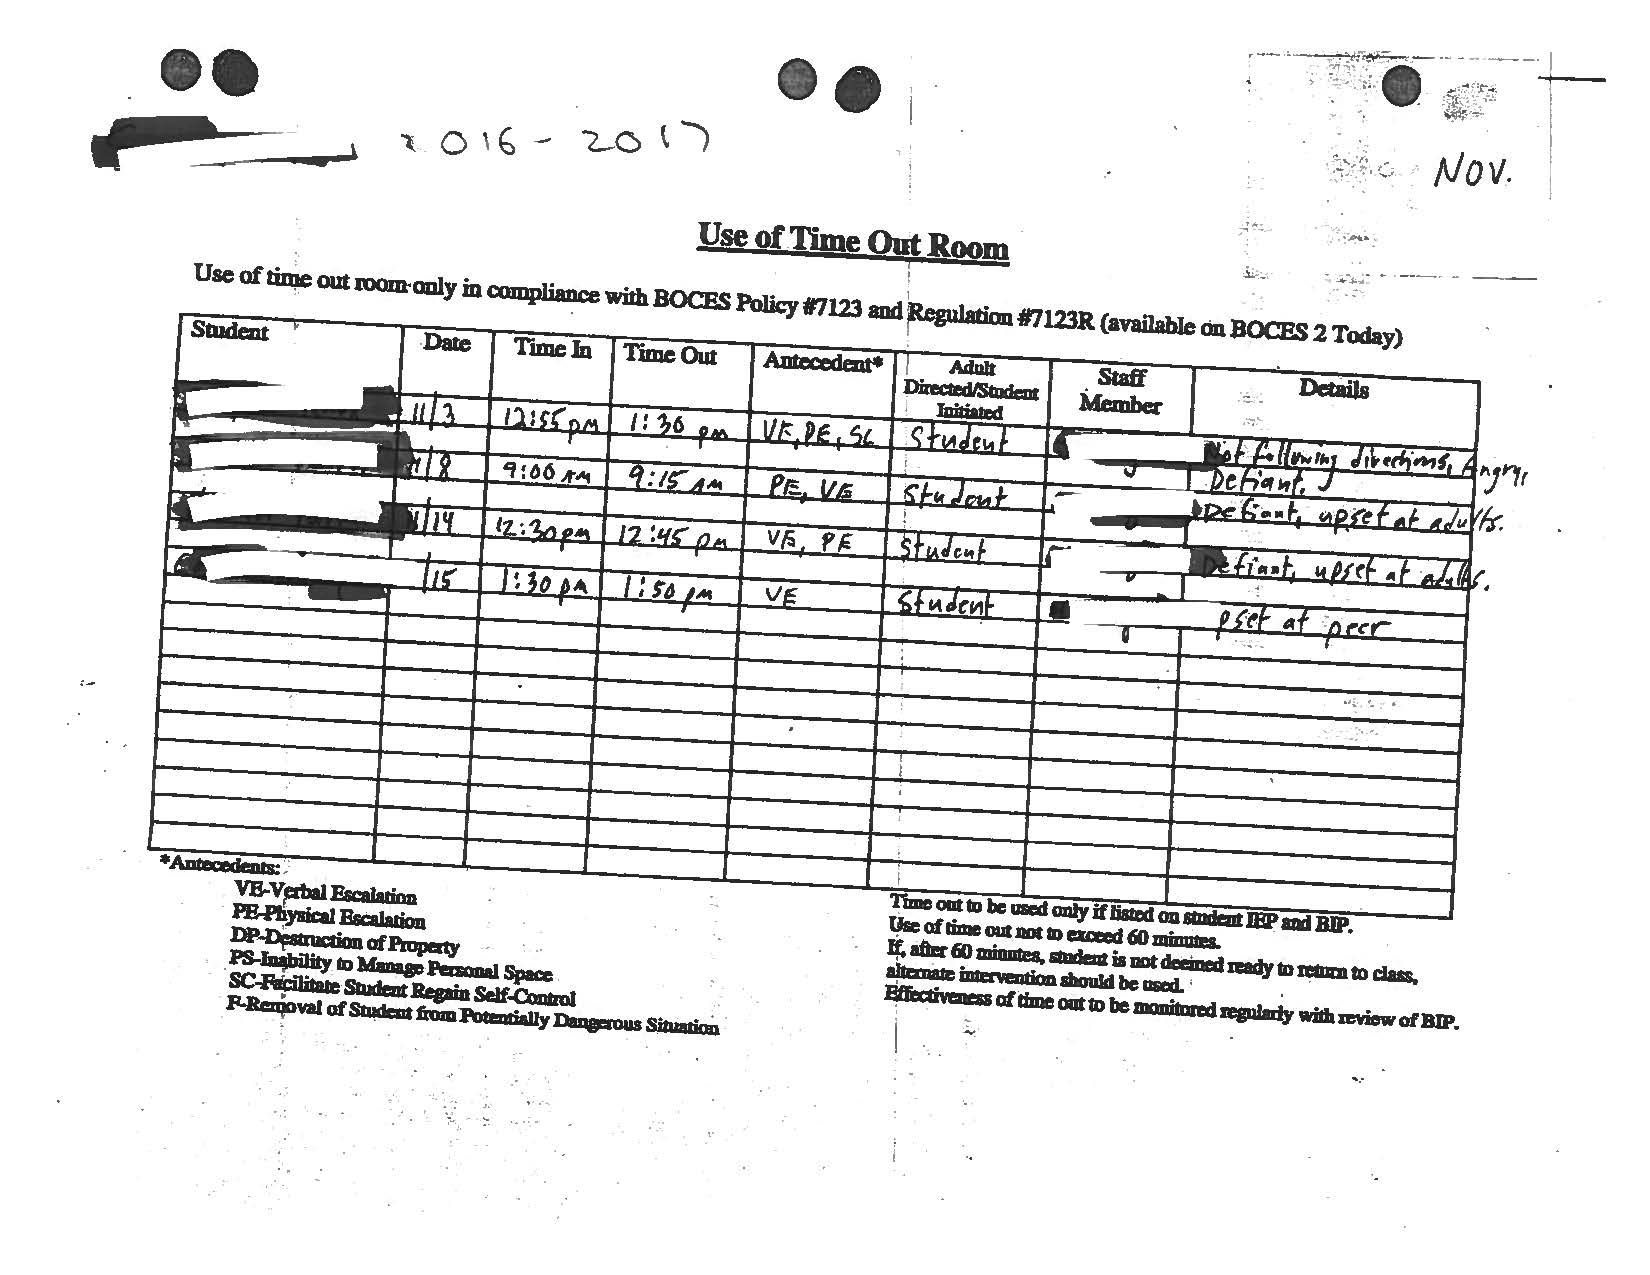 2016-2017
NOV.
Use of Time Out Room
Use of time out room only in compliance with BOCES Policy #7123 and Regulation #7123R (available on BOCES 2 Today)
Student Date Time In Time Out Antecedent* Adult Directed/Student Initiated Staff Member Details
11/3 12:55 pm 1:30 pm VE, PE, SC Student Not following directions, Angry, Defiant.
11/8 9:00 AM 9:15 AM PE, VE Student Defiant, upset at adults.
11/14 12:30 pm 12:45 pm VE, PE Student Defiant, upset at adults.
/15 1:30 pm 1:50 pm VE Student pset at peer
*Antecedents:
VE-Verbal Escalation
PE-Physical Escalation
DP-Destruction of Property
PS-Inability to Manage Personal Space
SC-Facilitate Student Regain Self-Control
F-Removal of Student from Potentially Dangerous Situation
Time out to be used only if listed on student IEP and BIP.
Use of time out not to exceed 60 minutes.
If, after 60 minutes, student is not deemed ready to return to class,
alternate intervention should be used.
Effectiveness of time out to be monitored regularly with review of BIP.